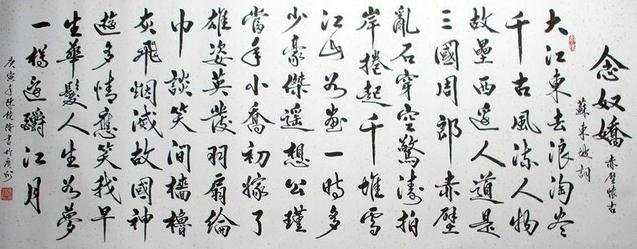 念奴嬌 赤壁懷古
蘇東坡詞
大江東去浪淘尽
千古風流人物
故壘西邊人道是
三國周郎赤壁
亂石穿空驚濤拍
岸捲起千堆雪
江山如畫一時多
少豪傑遥想公瑾
當年小喬初嫁了
雄姿英發羽扇綸
巾談笑間檣櫓
灰飛烟滅故國神
遊多情應笑我早
生華髮人生如夢
一樽還酹江月
庚寅年陳書於廣州